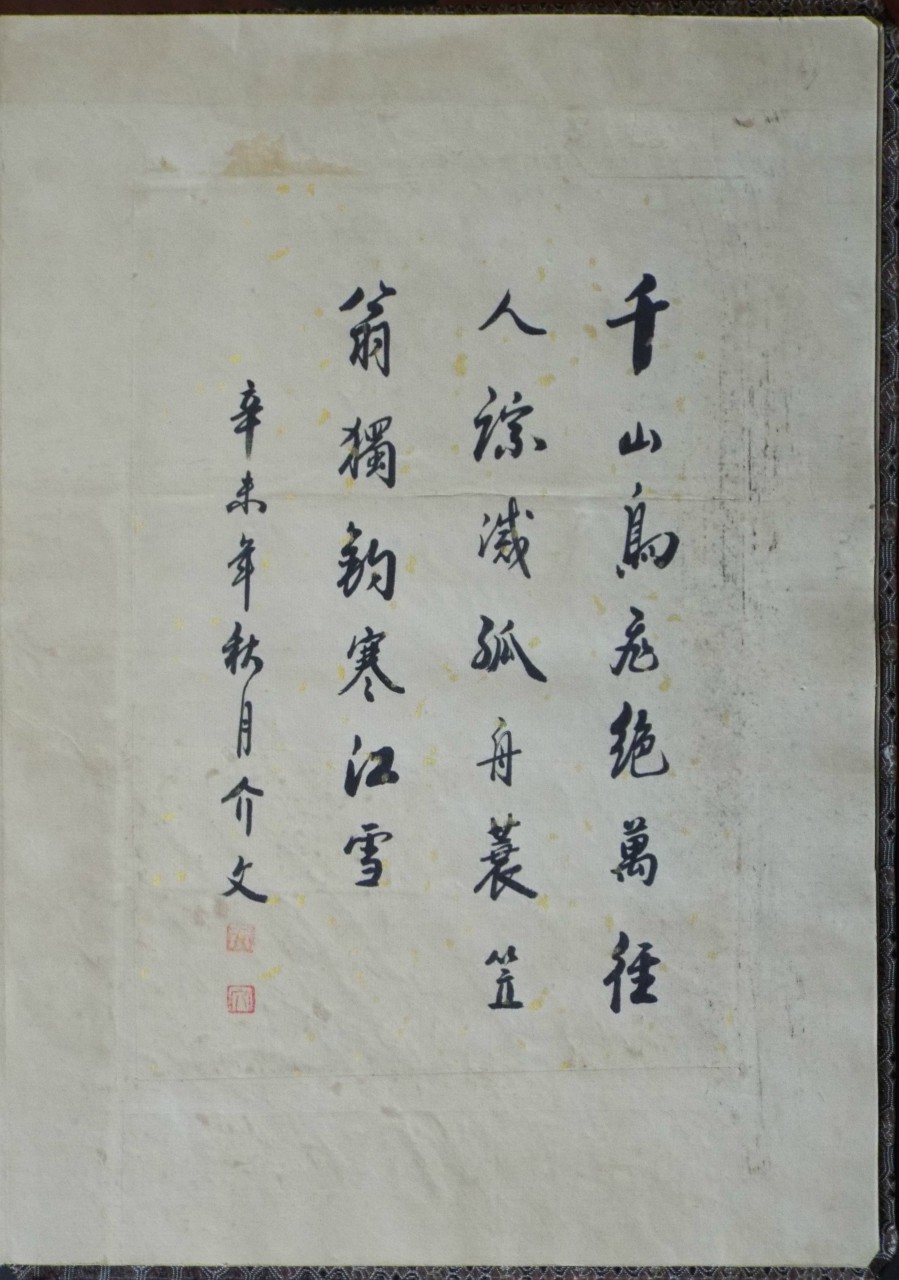 千山鳥飛絕萬徑
人蹤滅孤舟蓑笠
翁獨釣寒江雪
辛未年秋月介文